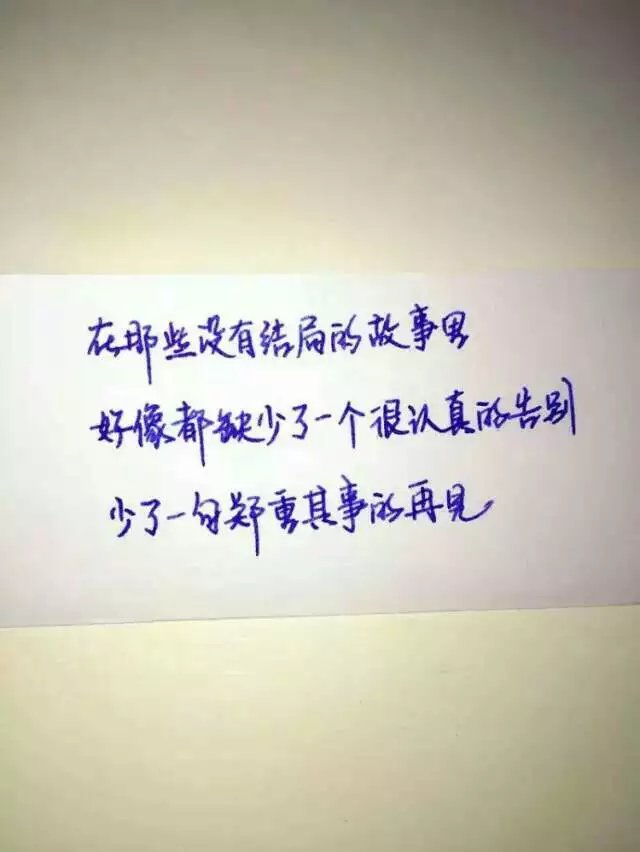 在那些没有结局的故事里
好像都缺少了一个很认真的告别
少了一句郑重其事的再见